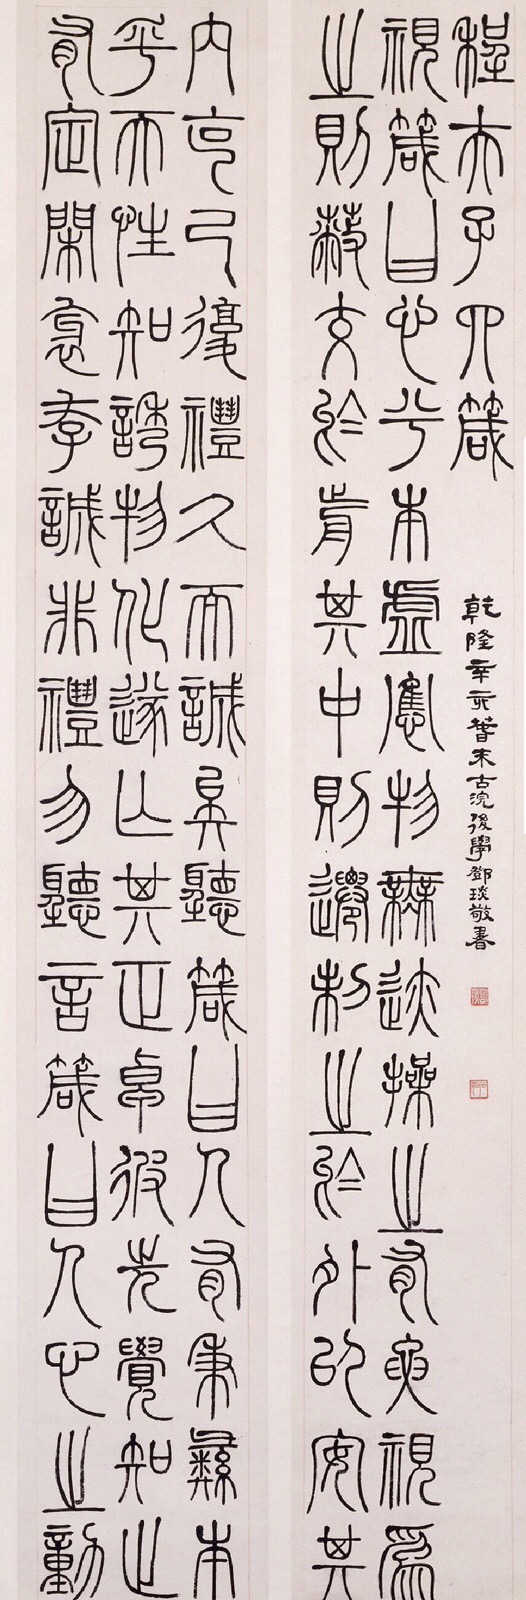 程夫子四箴
乾隆辛亥萅末古浣後學鄧琰敬書
視箴曰心兮本虛應物無迹操之有要視為
之則蔽交於前其中則遷制之於外以安其
內克己復禮久而誠矣聽箴曰人有秉彝本
乎天性知誘物化遂亡其正卓彼先覺知止
有定閑衺存誠非禮勿聽言箴曰人心之動